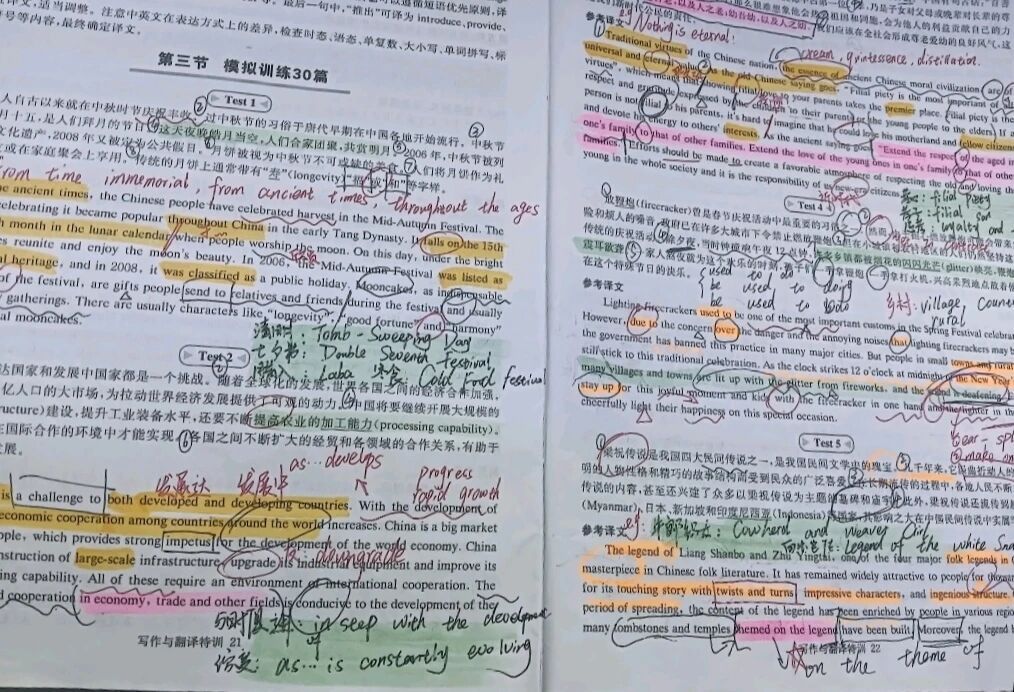 译文，适当调整。注意中英文在表达方式上的差异，检查时态、语态、单复数、大小写、单词拼写、标
号等内容，最终确定译文。
第三节 模拟训练30篇
Test 1
人自古以来就在中秋时节庆祝丰收，过中秋节的习俗于唐代早期在中国各地开始流行。
月十五，是人们拜月的节日，这天夜晚皓月当空，人们合家团聚，共赏明月。2006年，中秋节被列
文化遗产，2008年又被定为公共假日。月饼被视为中秋节不可或缺的美食，人们将月饼作为礼
或在家庭聚会上享用。传统的月饼上通常带有“寿”(longevity)、“福”和“和”等字样。
from time immemorial, from ancient times, throughout the ages
ancient times, the Chinese people have celebrated harvest in the Mid-Autumn Festival. The
celebrating it became popular throughout China in the early Tang Dynasty. It falls on the 15th
month in the lunar calendar when people worship the moon. On this day, under the bright
reunite and enjoy the moon's beauty. In 2006, the Mid-Autumn Festival was listed as
al heritage, and in 2008, it was classified as a public holiday. Mooncakes, as indispensable
of the festival, are gifts people send to relatives and friends during the festival and usually
gatherings. There are usually characters like "longevity", "good fortune" and "harmony"
al mooncakes.
清明节: Tomb-Sweeping Day
七夕节: Double Seventh Festival
Laba Cold Food Festival
Test 2
达国家和发展中国家都是一个挑战。随着全球化的发展，世界各国之间的经济合作加强，
亿人口的大市场，为拉动世界经济发展提供了可观的动力。中国将要继续开展大规模的
ructure)建设，提升工业装备水平，还要不断提高农业的加工能力(processing capability)。
在国际合作的环境中才能实现。各国之间不断扩大的经贸和各领域的合作关系，有助于
发展。
as... develops
发展中
progress
rapid growth
is a challenge to both developed and developing countries. With the development of
economic cooperation among countries around the world increases. China is a big market
ople, which provides strong impetus for the development of the world economy. China
nstruction of large-scale infrastructure, upgrade its industrial equipment and improve its
downgrade
ing capability. All of these require an environment of international cooperation. The
cooperation in economy, trade and other fields is conducive to the development of the
与时俱进: in step with the development of
as... is constantly evolving
写作与翻译特训 21
参考译文
Nothing is eternal!
cream, quintessence, distillation.
Traditional virtues of the Chinese nation, the essence of ancient Chinese moral civilization, are of
universal and eternal value. As the old Chinese saying goes, "Filial piety is the most important of all
virtues", which means that showing filial love to your parents takes the premier place. Filial piety is the most
respect and gratitude expressed by the children to their parents or the young people to the elders. If a
person is not filial to his parents, it's hard to imagine that he could love his motherland and fellow citizens
and devote his energy to others' interests. As the ancient saying goes, "Extend the respect of the aged in
one's family to that of other families. Extend the love of the young ones in one's family to that of other
families." Efforts should be made to create a favorable atmosphere of respecting the old and loving the
young in the whole society and it is the responsibility of us new-era citizens.
filial piety
filial
loyalty and
Test 4
放鞭炮(firecracker)曾是春节庆祝活动中最重要的习俗之一。然而
险和烦人的噪音，政府已在许多大城市下令禁止燃放鞭炮。但在小城镇
传统的庆祝活动。除夕夜，当时钟敲响午夜12点钟，许多乡镇都被烟花的闪闪光芒(glitter)映亮，鞭炮
震耳欲聋。家人熬夜为这个欢乐的时刻，孩子们一手拿鞭炮一手拿打火机，兴高采烈地点放着他
在这个特殊节日的快乐。
used to do
be used to doing
be used to do
乡村: village, country
rural
参考译文
Lighting firecrackers used to be one of the most important customs in the Spring Festival celebrat
However, due to the concern over the danger and the annoying noises that lighting firecrackers may b
the government has banned this practice in many major cities. But people in small towns and rural
still stick to this traditional celebration. As the clock strikes 12 o'clock at midnight of the New Year
many villages and towns are lit up with the glitter from fireworks, and the sound is deafening
stay up for this joyful moment and kids with the firecracker in one hand and the lighter in the
cheerfully light their happiness on this special occasion.
Test 5
梁祝传说是我国四大民间传说之一，是我国民间文学中的瑰宝。千年来，它以曲折动人的
明的人物性格和精巧的故事结构而受到民众的广泛喜爱。在长期流传的过程中，各地人民不断
传说的内容，甚至还兴建了众多以梁祝传说为主题的墓碑和庙等。此外，梁祝传说还流传到
(Myanmar)、日本、新加坡和印度尼西亚(Indonesia)等国家，其影响之大在中国民间传说中实属
参考译文
Cowherd and Weaver Girl
Legend of the white Snake
The legend of Liang Shanbo and Zhu Yingtai, one of the four major folk legends in C
masterpiece in Chinese folk literature. It has remained widely attractive to people for thousand
for its touching story with twists and turns, impressive characters, and ingenious structure.
period of spreading, the content of the legend has been enriched by people in various regio
many tombstones and temples themed on the legend have been built. Moreover, the legend h
on the theme of
写作与翻译特训 22